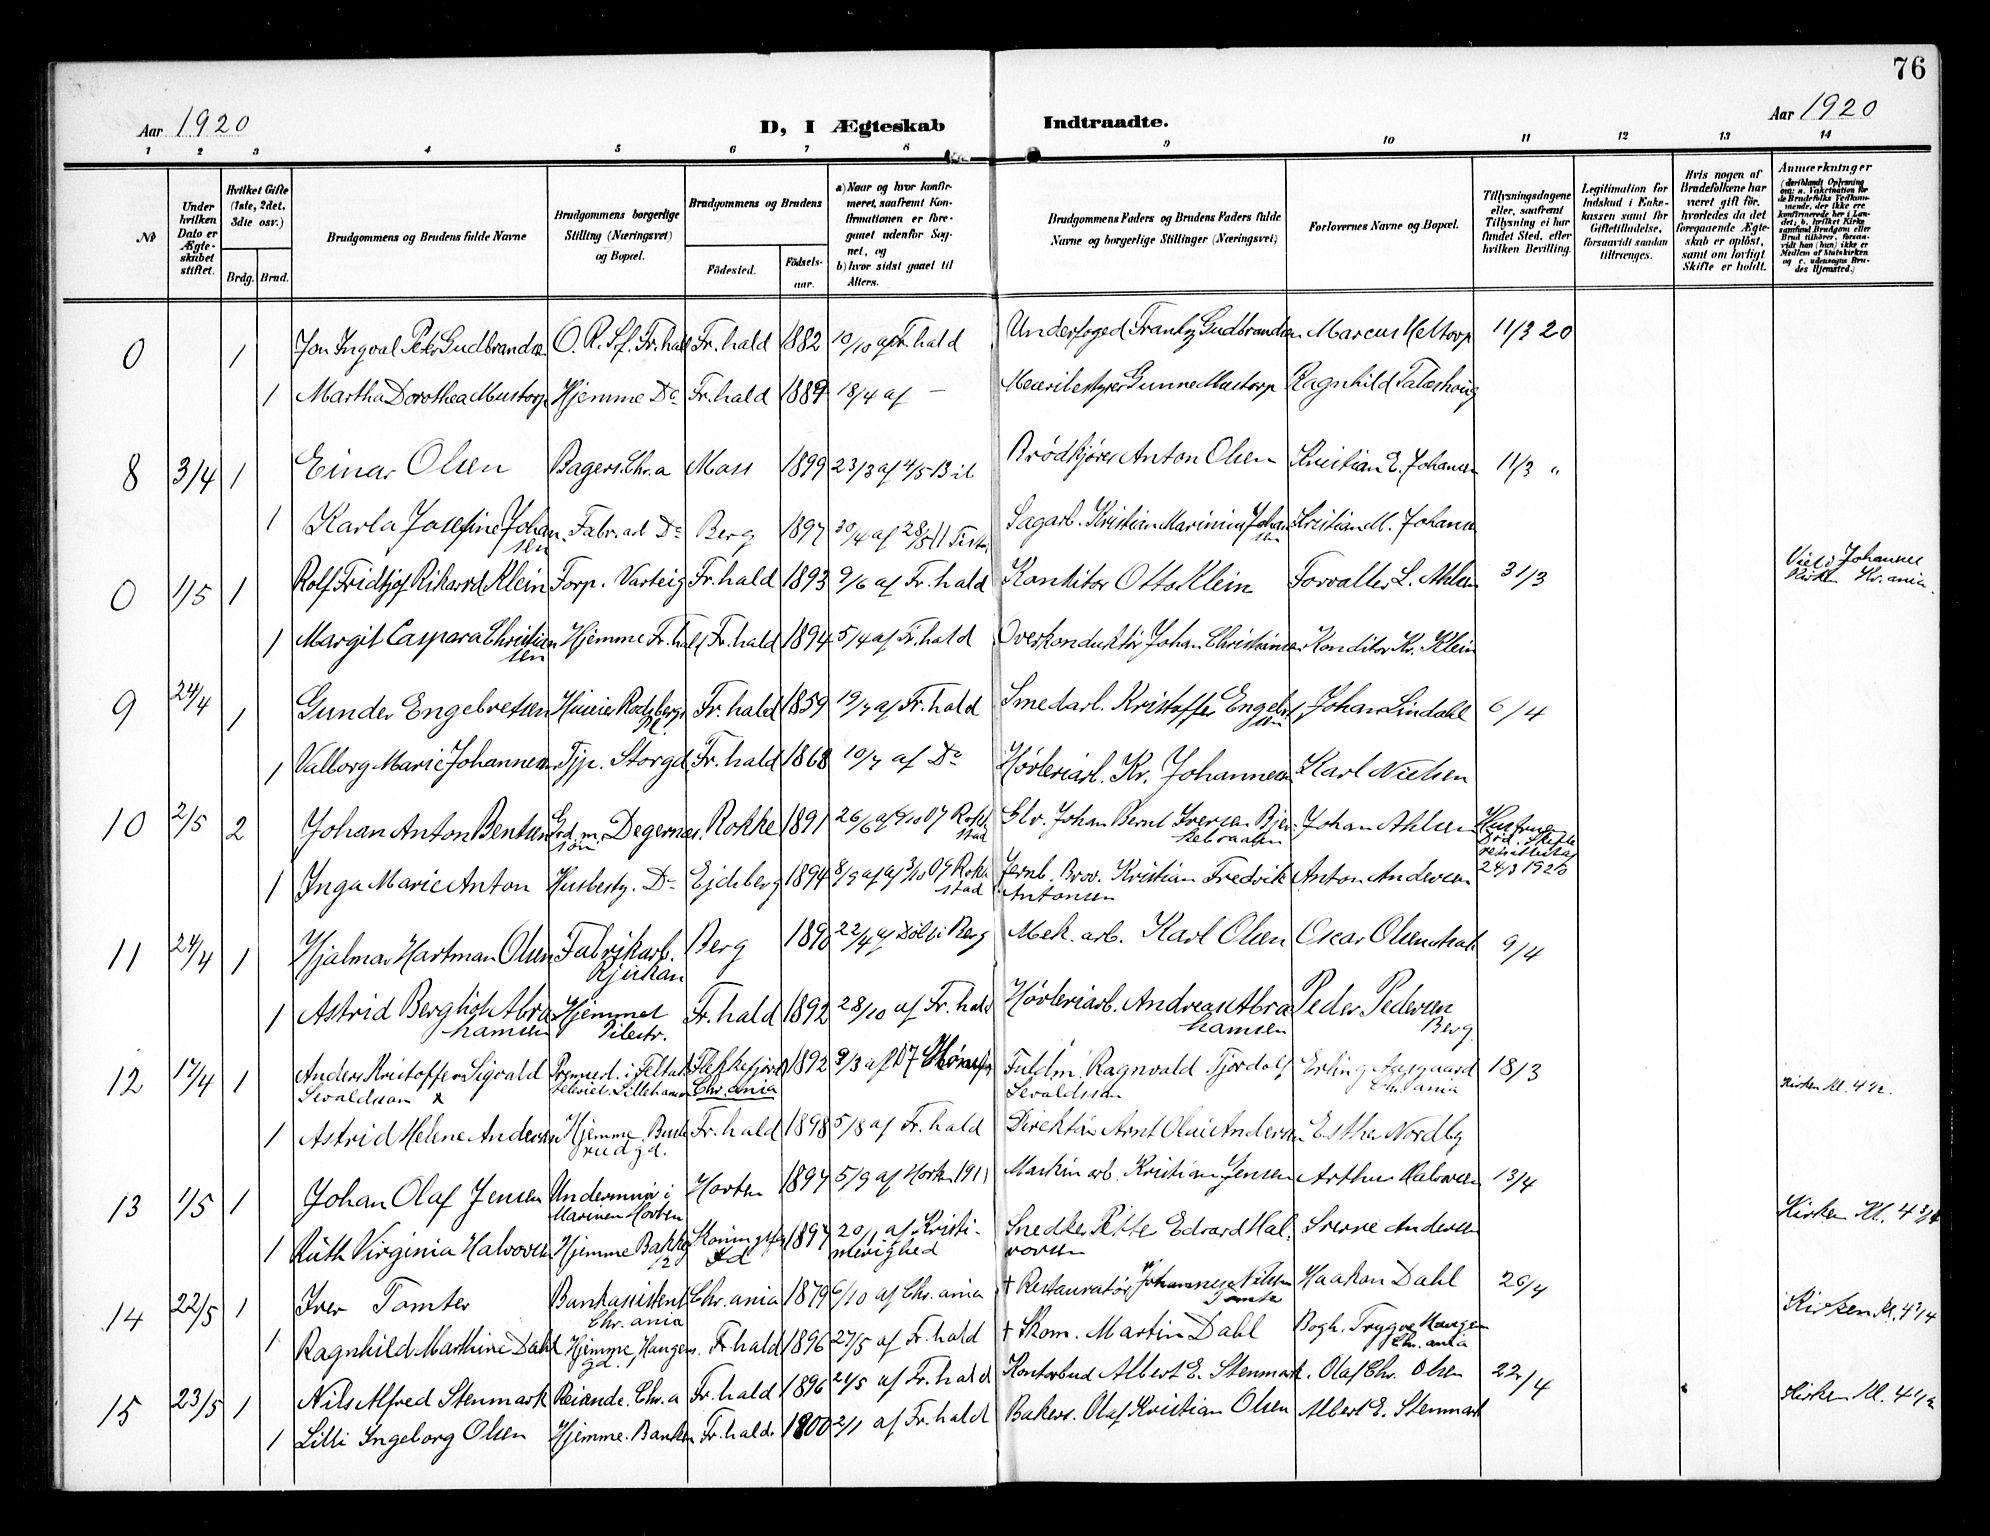 76
Aar 1920
D, I Ægteskab Indtraadte.
Aar 1920
1 2 3 4 5 6 7 8 9 10 11 12 13 14
№
Under hvilken Dato er Ægteskabet stiftet.
Hvilket Gifte (1ste, 2det, 3die osv.)
Brdg. Brud.
Brudgommens og Brudens fulde Navne
Brudgommens borgerlige Stilling (Næringsvei) og Bopæl.
Brudgommens og Brudens
Fødested. Fødselsaar.
a) Naar og hvor konfirmeret, saafremt Konfirmationen er foregaaet udenfor Sognet, og
b) hvor sidst gaaet til Alters.
Brudgommens Faders og Brudens Faders fulde Navne og borgerlige Stillinger (Næringsvei)
Forlovernes Navne og Bopæl.
Tillysningsdagene eller, saafremt Tillysning ei har fundet Sted, efter hvilken Bevilling.
Legitimation for Indskud i Enkekassen samt for Giftetilladelse, forsaavidt saadan tiltrænges.
Hvis nogen af Brudefolkene har været gift før, hvorledes da det foregaaende Ægteskab er opløst, samt om lovligt Skifte er holdt.
Anmerkninger
0 1 Jon Ingval Peter Gudbrandsen O. R. Sf. Fr.hald Fr. hald 1882 10/10 af Fr. hald Underfoged Frantz Gudbrandsen Marcus Meltorp 11/3 20
1 Martha Dorothea Mustorp Hjemme Do Fr. hald 1889 18/4 af — Meieribestyrer Gunne Mustorp Ragnhild
8 3/4 1 Einar Olsen Bagers. Chr.a Moss 1899 23/3 af 4/5 13 Brødkjører Anton Olsen Kristian E. Johansen 11/3 "
1 Karla Josefine Johansen Fabr. arb Do Berg 1897 30/4 af 28/5 11 Sagarb. Kristian Marinius Johansen Kristian M. Johansen
0 1/5 1 Rolf Fridtjof Rikard Klein Forp. Varteig Fr. hald 1893 9/6 af Fr. hald Konditor Otto Klein Forvalter L. Ahlsen 31/3 Viet i Johannes Kirken Kr.ania.
1 Margit Caspara Christiansen Hjemme Fr. hald Fr. hald 1894 5/4 af Fr. hald Overkonduktør Johan Christiansen Konditor Kr. Klein
9 24/4 1 Gunder Engebretsen Fr. hald 1859 19/7 af Fr. hald Smedarb. Kristoffer Engebretsen Johan Lindahl 6/4
1 Valborg Marie Johannesen Tjp. Storgd. Fr. hald 1868 10/7 af Do Høvleriarb. Kr. Johannesen Karl Nielsen
10 2/5 2 Johan Anton Bentsen Grd.m. Degernes. Rokke 1891 26/6 af 07 Rokkestad Glv. Johan Bernt Iversen Johan Ahlsen Hustruen
1 Inga Marie Anton Husbesty. Do Ejdsberg 1894 8/9 af 3/10 09 Rakkestad Jernb. Brov. Kristian Fredrik Antonsen Anton Andersen 24/3 1920
11 24/4 1 Hjalmar Hartman Olsen Fabrikarb. Rjukan Berg 1890 22/4 af Berg Mek. arb. Karl Olsen Oscar Olsen 9/4
1 Astrid Bergliot Abrahamsen Hjemmet Pilestr. Fr. hald 1892 28/10 af Fr. hald Høvleriarb. Andreas Abrahamsen Peder Pedersen Berg
12 17/4 1 Anders Kristoffer Sigvald Sevaldsson x Premierl. i Lillehammer Flekkefjord Chr. ania 1892 9/3 af 07 Fuldm. Ragnvald Tjerdolf Sevaldsson Erling Aasgaard Chr. ania 18/3 Kirken Kl. 4 1/2.
1 Astrid Helene Andersen Hjemme. Buskerudgd. Fr. hald 1898 5/8 af Fr. hald Direktør Arnt Olai Andersen Esther Nordby
13 1/5 1 Johan Olaf Jensen Underminør i Marinen Horten Horten 1897 5/9 af Horten 1911 Maskin arb. Kristian Jensen Arthur Halvorsen 13/4 Kirken Kl. 4 3/4
1 Ruth Virginia Halvorsen Hjemme Bakkeg 12 1897 20/1 af Kristi menighed Snedker Pette Edvard Halvorsen Sverre Andersen
14 22/5 1 Iver Tomter Bankassistent Chr. ania Chr. ania 1879 6/10 af Chr. ania † Restauratør Johannes Nilsen Tomter Haakon Dahl 26/4 Kirken Kl. 4 1/4
1 Ragnhild Marthine Dahl Hjemme, Haugens gd. Fr. hald 1896 27/5 af Fr. hald † Skom. Martin Dahl Bogh. Trygve Haugen Chr. ania
15 23/5 1 Nils Alfred Stenmark Reisende. Chr. a Fr. hald 1896 21/5 af Fr. hald Kontorbud Albert E. Stenmark. Olaf Chr. Olsen 22/4 Kirken Kl. 4 1/2
1 Lilli Ingeborg Olsen Hjemme. Banken Fr. hald. 1900 2/1 af Fr. hald Bakers. Olaf Kristian Olsen Albert E. Stenmark